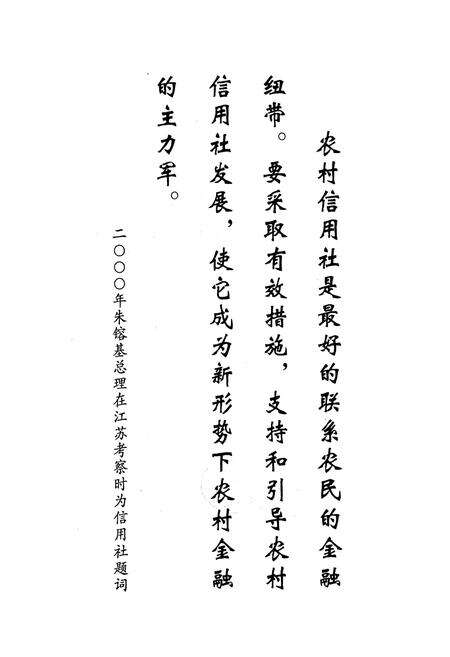 农村信用社是最好的联系农民的金融
纽带。要采取有效措施，支持和引导农村
信用社发展，使它成为新形势下农村金融
的主力军。
二〇〇〇年朱镕基总理在江苏考察时为信用社题词